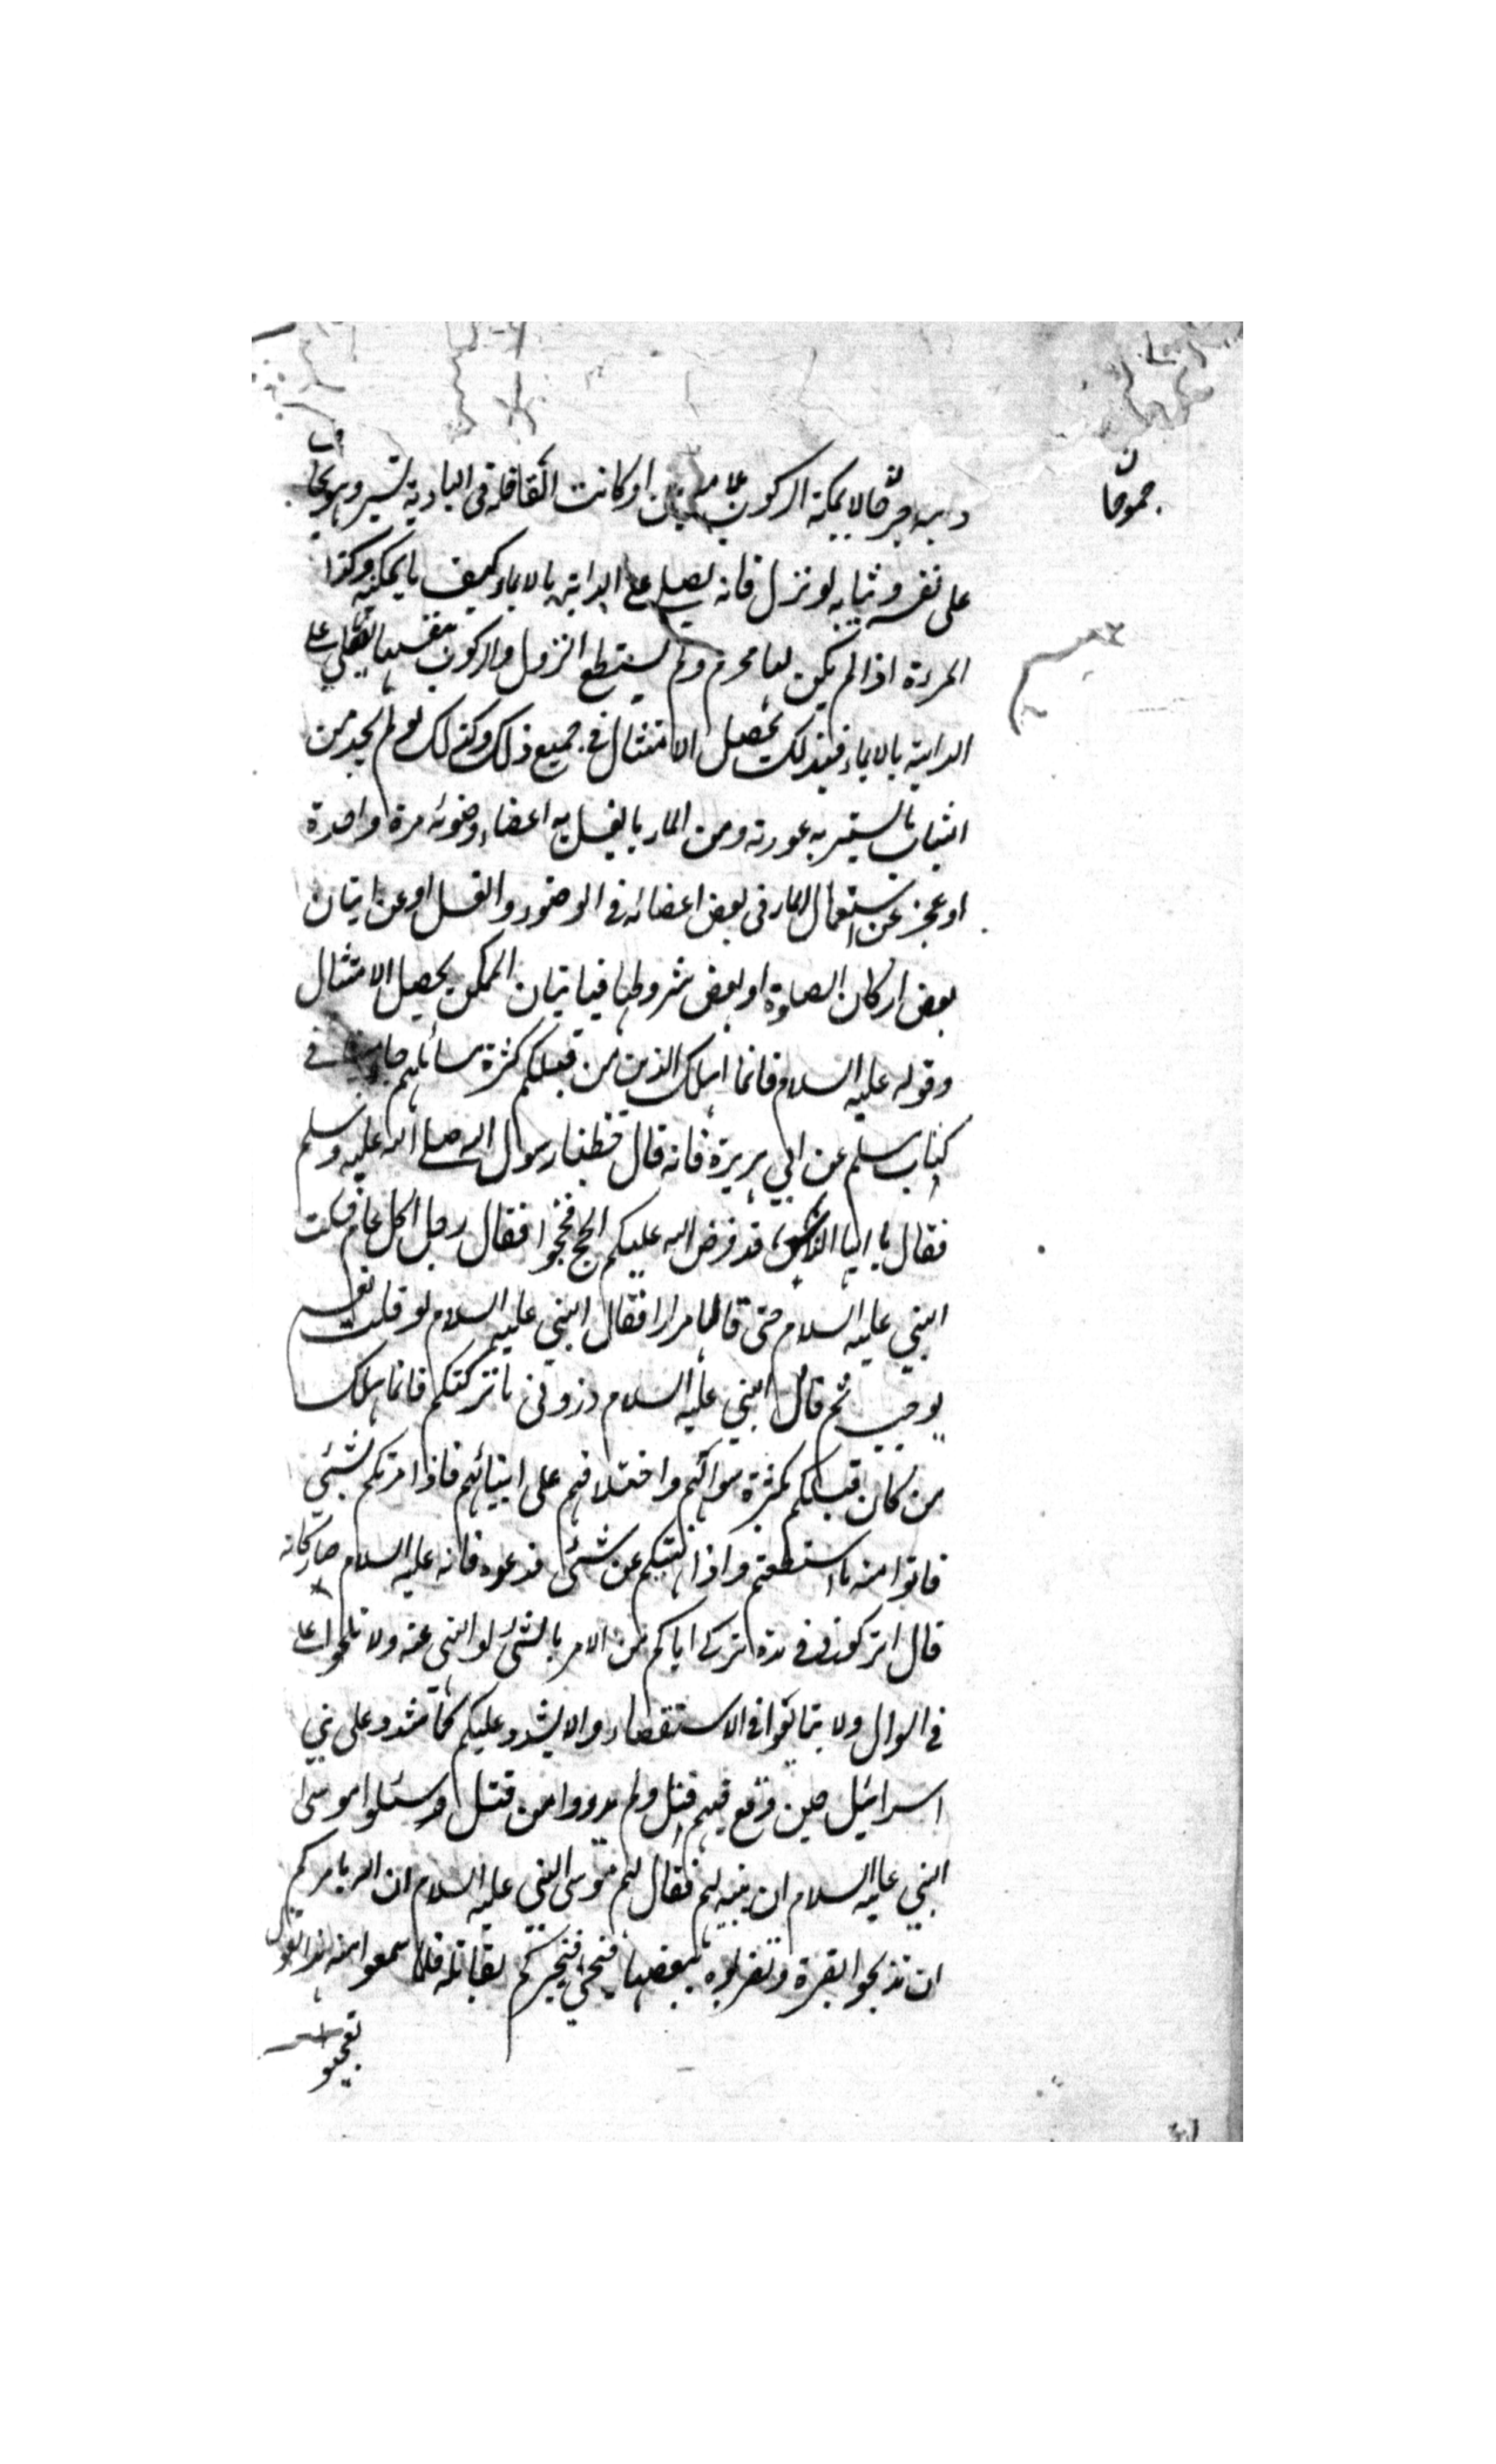 جموحا
لا يمكنه الركوب او كانت القافلة في البادية تسير وهو يخاف
على نفسه وثيابه لو نزل فانه يصلي على الدابة بالايماء كيف ما يمكنه وكذا
المرءة اذا لم يكن لها محرم ولم يستطع النزول والركوب بنفسها تصلي على
الدابة بالايماء فبذلك يحصل الامتثال في جميع ذلك وكذلك لو لم يجد من
الثياب ما يستر به عورته ومن الماء ما يغسل به اعضاء وضوئه مرة واحدة
او عجز عن استعمال الماء في بعض اعضائه في الوضوء والغسل او عن اتيان
بعض اركان الصلوة او بعض شروطها فباتيان الممكن يحصل الامتثال
وقوله عليه السلام فانما اهلك الذين من قبلكم كثرة مسائلهم جاء في
كتاب مسلم عن ابي هريرة فانه قال خطبنا رسول الله صلى الله عليه وسلم
فقال يا ايها الناس قد فرض الله عليكم الحج فحجوا فقال رجل اكل عام فسكت
النبي عليه السلام حتى قالها مرارا فقال النبي عليه السلام لو قلت نعم
لوجبت ثم قال النبي عليه السلام ذروني ما تركتكم فانما هلك
من كان قبلكم بكثرة سؤالهم واختلافهم على انبيائهم فاذا امرتكم بشئ
فاتوا منه ما استطعتم واذا نهيتكم عن شئ فدعوه فانه عليه السلام صار كانه
قال اتركوني في مدة تركي اياكم من الامر بالشئ او النهي عنه ولا تلحوا علي
في السوال ولا تبالغوا في الاستقصاء والا يشدد عليكم كما شدد على بني
اسرائيل حين وقع فيهم قتل ولم يدروا من قتل وسئلوا موسى
النبي عليه السلام ان يبينه لهم فقال لهم موسى النبي عليه السلام ان الله يامركم
ان تذبحوا بقرة وتضربوه ببعضها فيحيى فيخبركم بقاتله فلما سمعوا منه هذا القول
تعجبوا